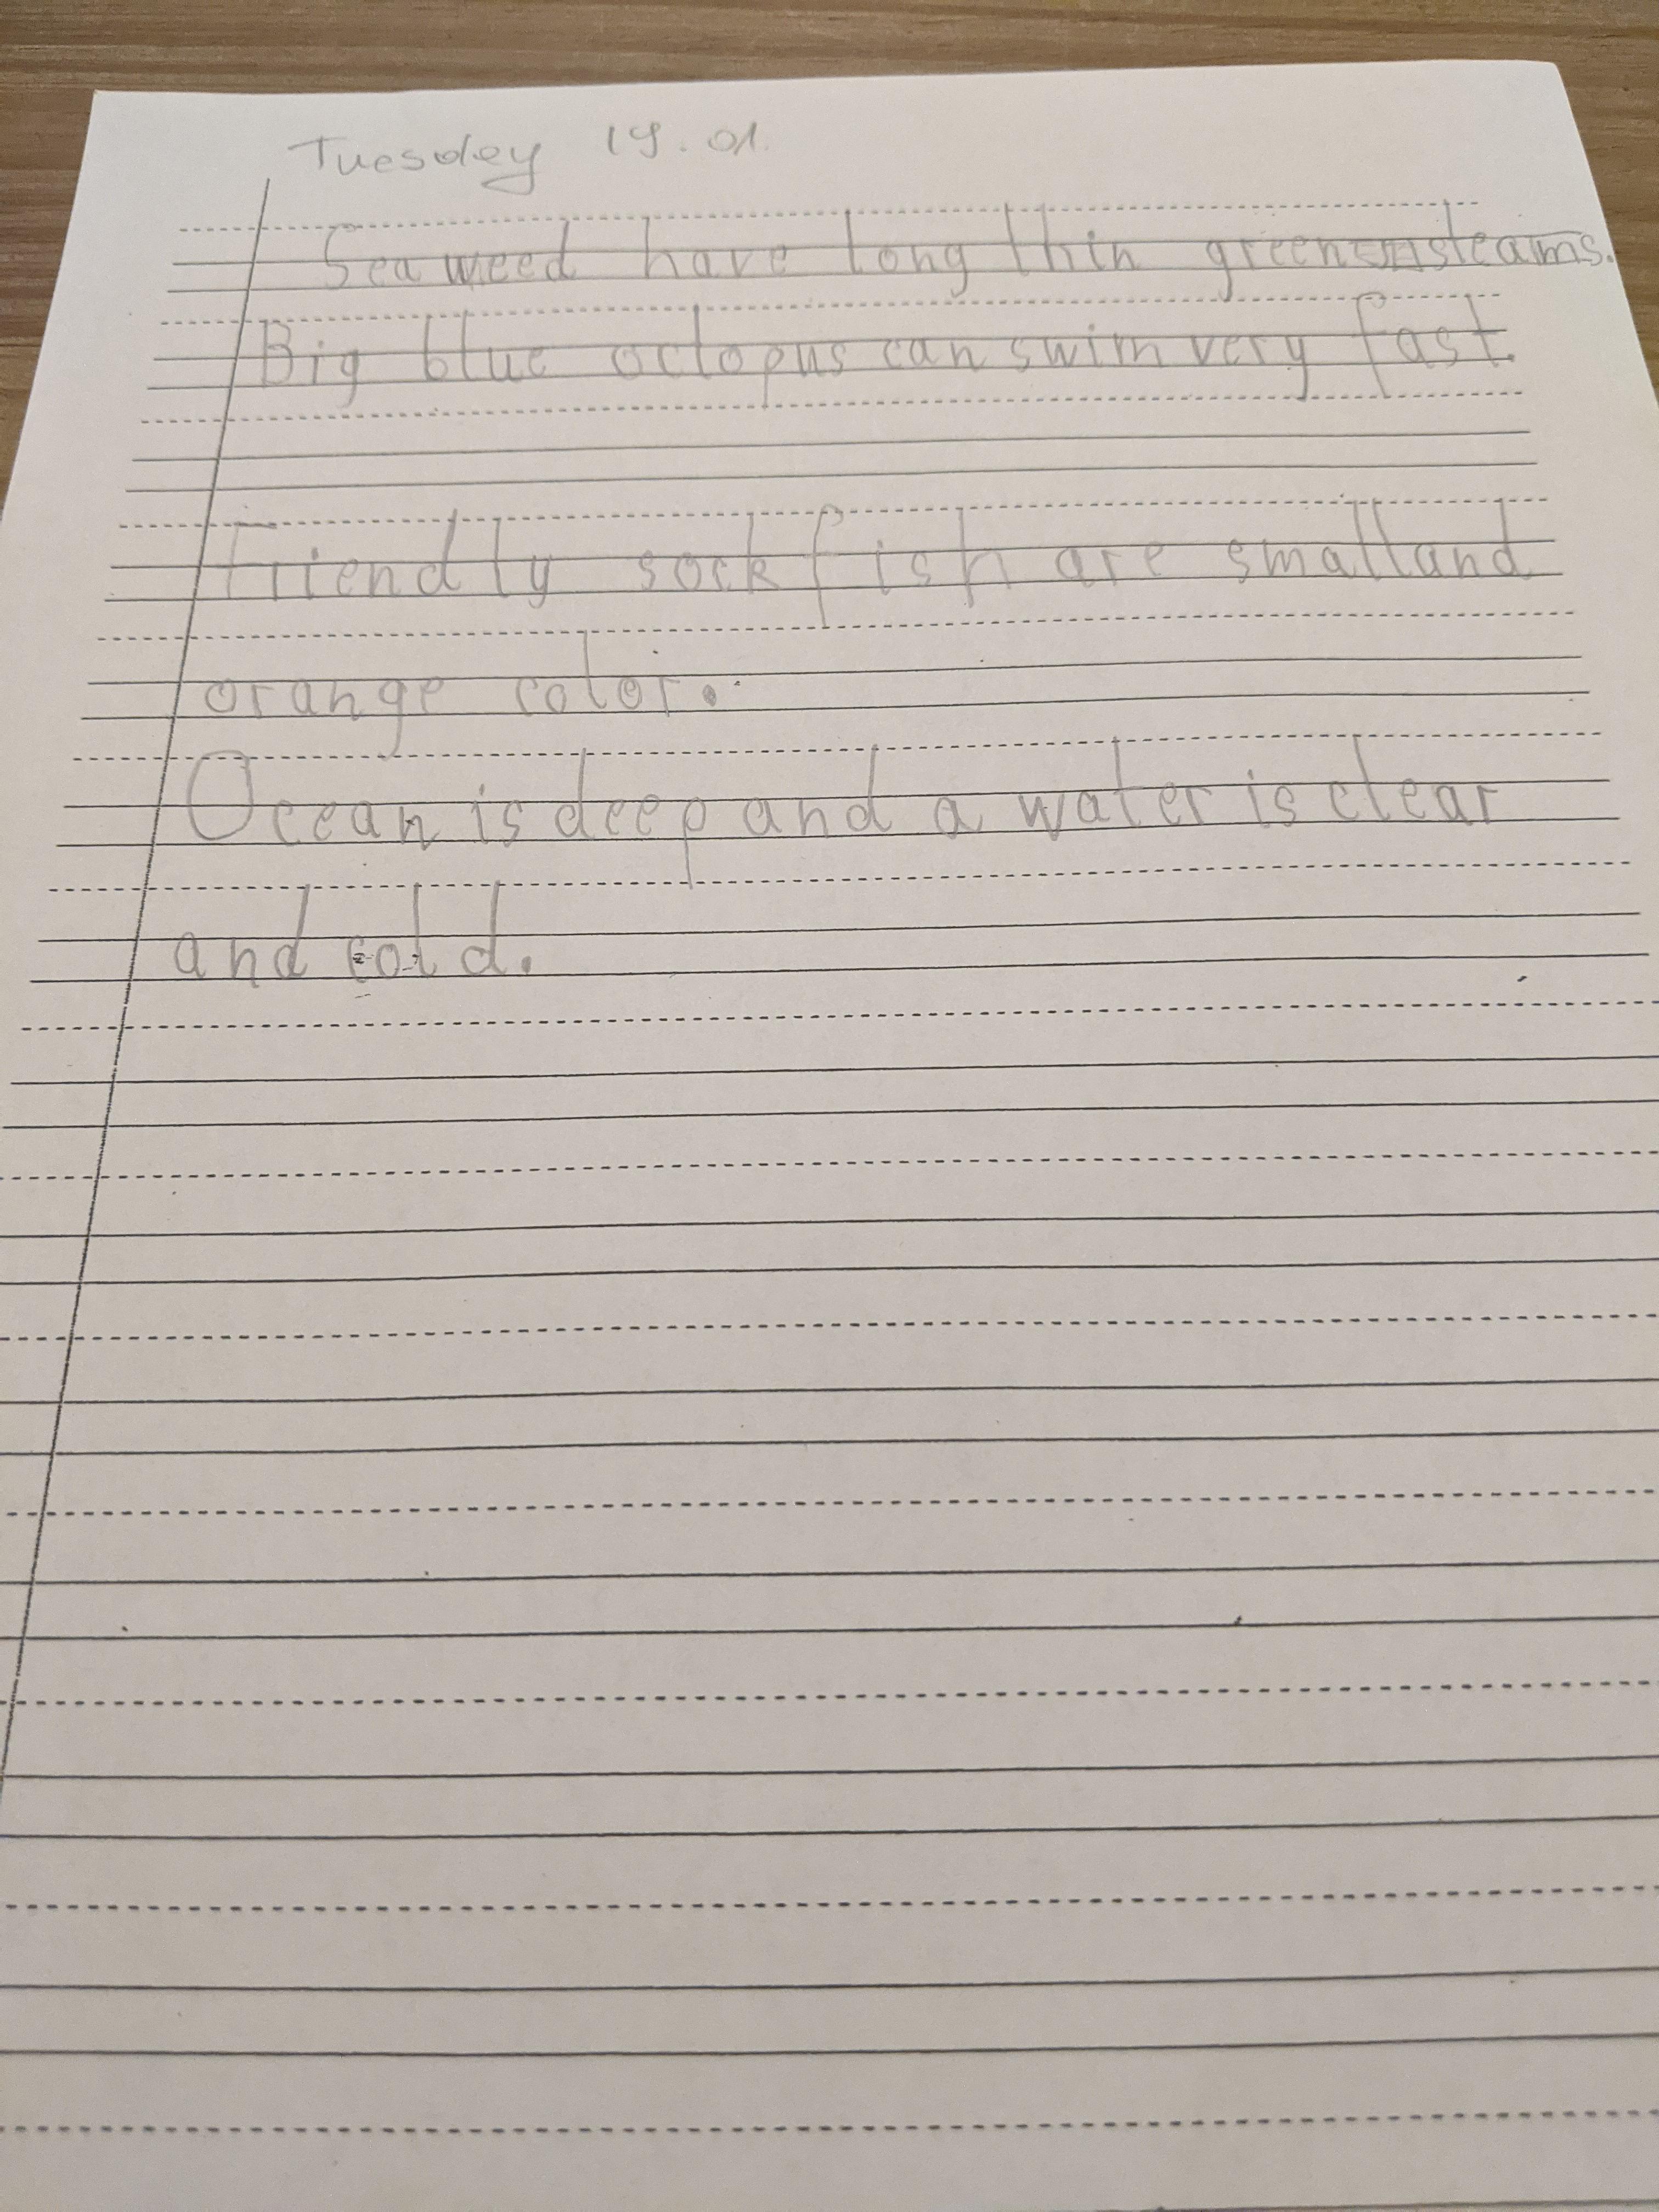 Tuesday 19.01.
Seaweed have long thin green steams.
Big blue octopus can swim very fast.
Friendly sock fish are small and
orange color.
Ocean is deep and a water is clear
and cold.